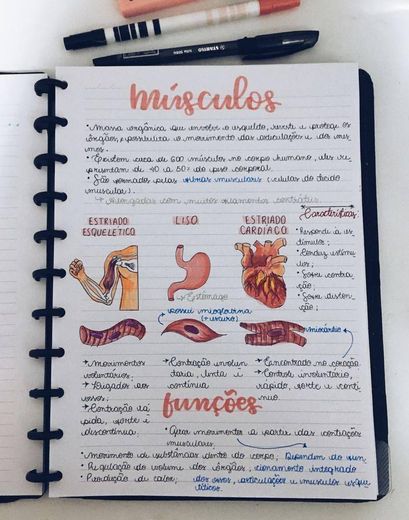 músculos
• Massa orgânica que envolve o esqueleto, reveste e protege os
órgãos, e possibilita o movimento das articulações e dos mes-
mos.
• Existem cerca de 600 músculos no corpo humano, eles re-
presentam de 40 a 50% do peso corporal.
• São formados pelas fibras musculares (células do tecido
muscular).
↳ Alongadas com muitos filamentos contráteis.
ESTRIADO ESQUELÉTICO
LISO
ESTRIADO CARDÍACO
Características
• Responde à es-
tímulos;
• Conduz estímu-
los;
• Sofre contra-
ção;
• Sofre disten-
ção;
→Estômago
possui mioglobina
(+ escuro)
miocárdio
→ Movimentos
voluntários;
→ Ligados aos
ossos;
→ Contração rá-
pida, forte e
discontinua.
→ Contração involun-
tária, lenta e
contínua
→ Concentrado no coração.
→ Controle involuntário,
rápido, forte e contí-
nuo.
funções
• Gerar movimentos a partir das contrações
musculares.
• Movimento de substâncias dentro do corpo;
Dependem do fun-
• Regulação do volume dos órgãos;
cionamento integrado
• Produção de calor;
dos ossos, articulações e músculos esque-
léticos.